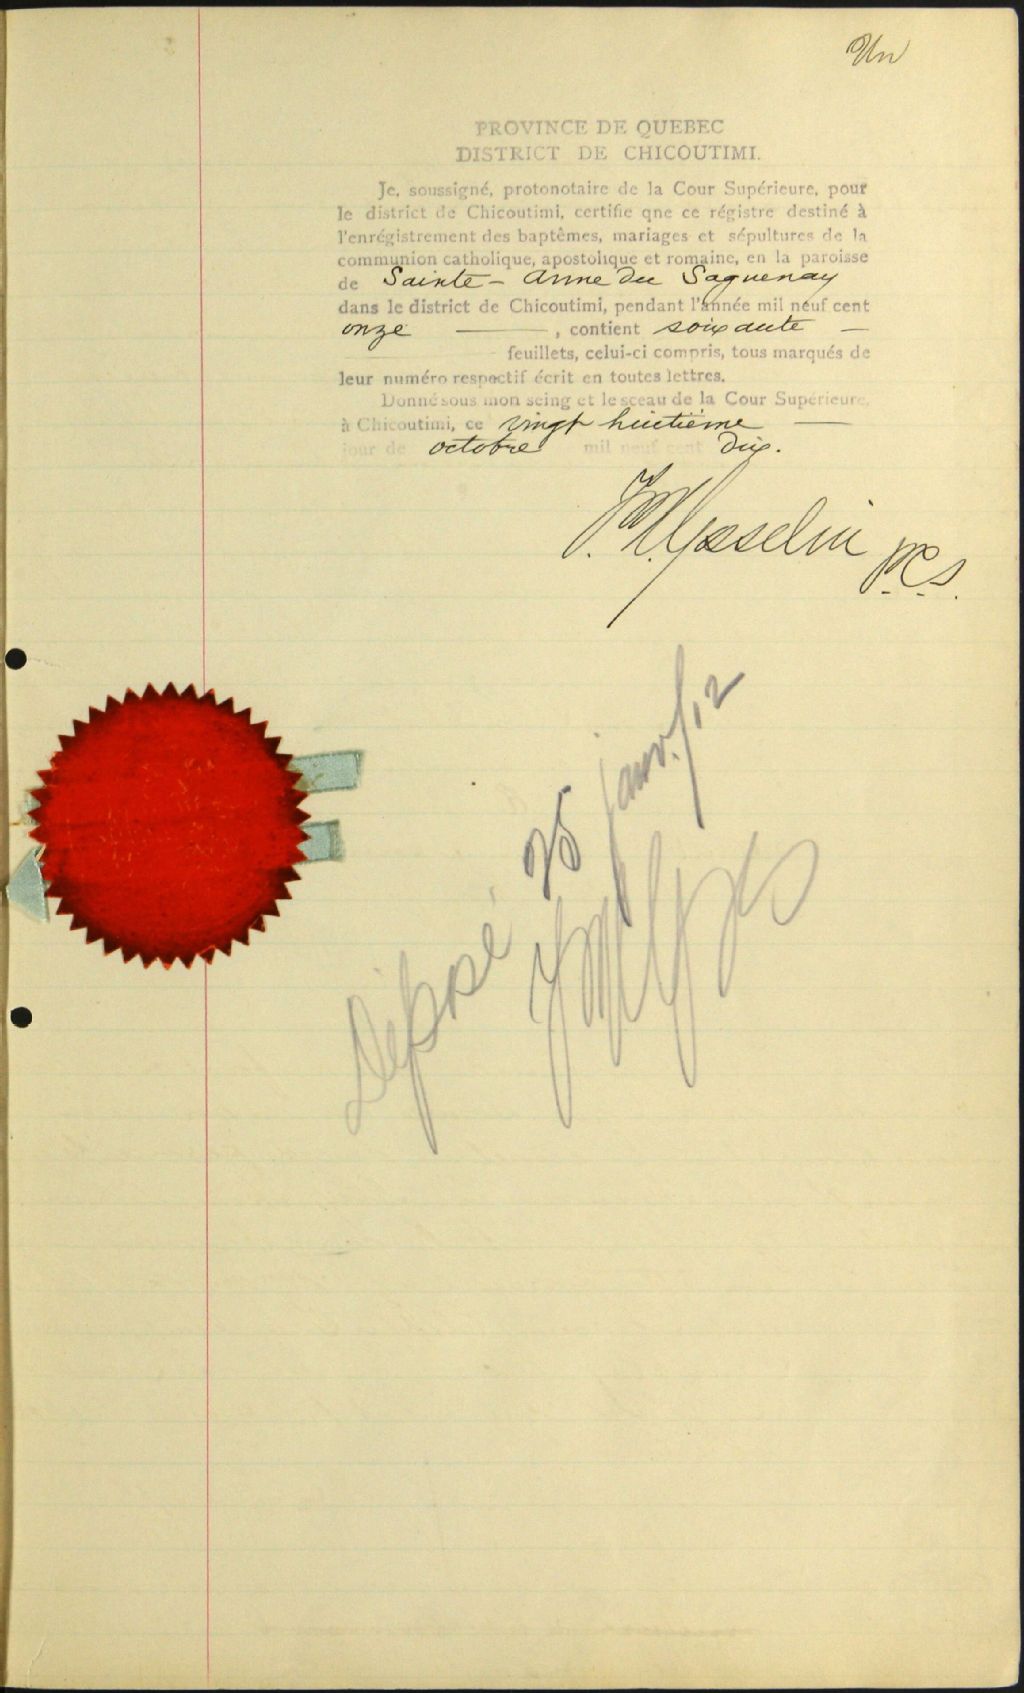 Un
PROVINCE DE QUEBEC
DISTRICT DE CHICOUTIMI.
Je, soussigné, protonotaire de la Cour Supérieure, pour
le district de Chicoutimi, certifie qne ce régistre destiné à
l'enrégistrement des baptêmes, mariages et sépultures de la
communion catholique, apostolique et romaine, en la paroisse
de Sainte-Anne du Saguenay
dans le district de Chicoutimi, pendant l'année mil neuf cent
onze ——, contient soixante —
feuillets, celui-ci compris, tous marqués de
leur numéro respectif écrit en toutes lettres.
Donné sous mon seing et le sceau de la Cour Supérieure,
à Chicoutimi, ce vingt huitième —
jour de octobre mil neuf cent dix.
Gosselin p.c.s.
Déposé 25 janv./12